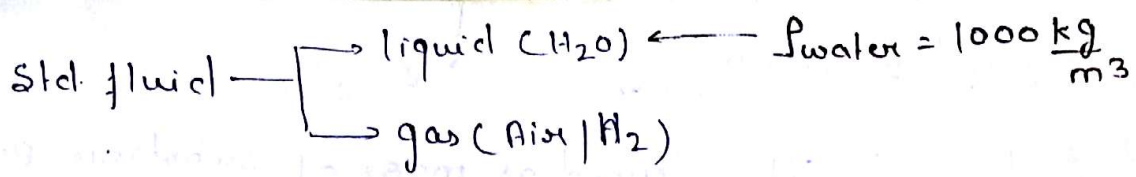 Std. fluid → liquid (H₂O) ← ρwater = 1000 kg/m³
→ gas (Air | H₂)